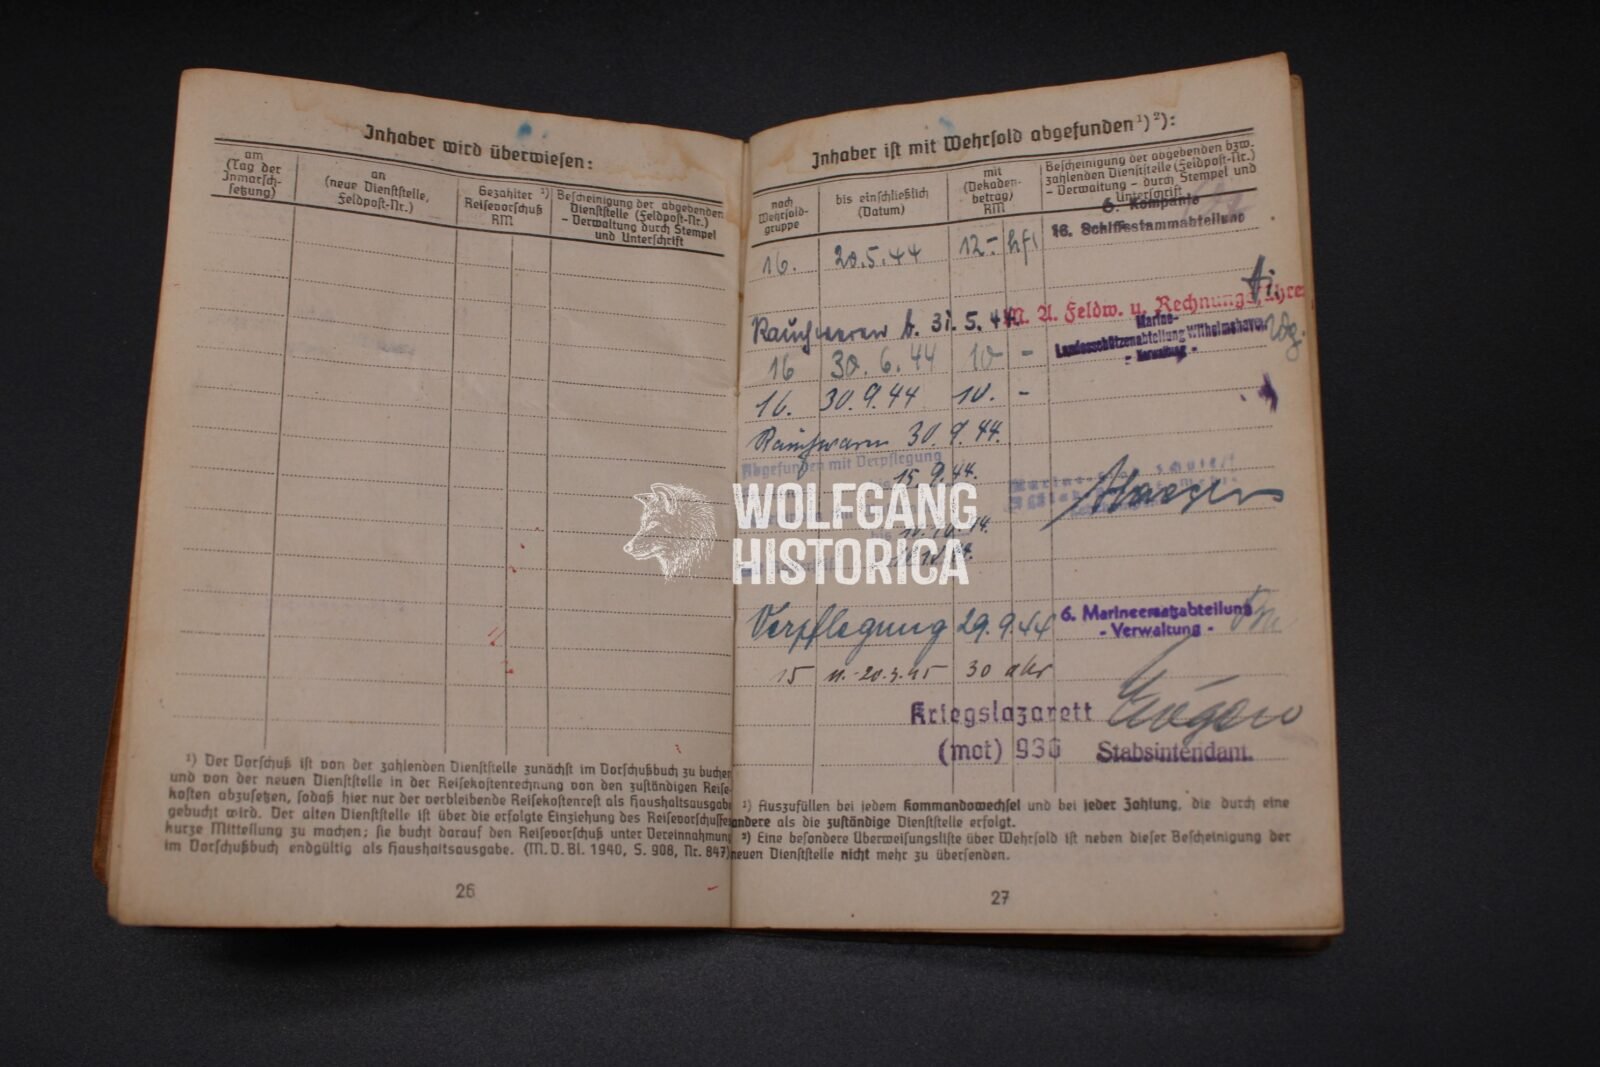 Inhaber wird überwiesen:
am
(Tag der
Inmarsch-
setzung)
an
(neue Dienststelle,
Feldpost-Nr.)
Gezahlter ¹)
Reisevorschuß
RM
Bescheinigung der abgebenden
Dienststelle (Feldpost-Nr.)
- Verwaltung durch Stempel
und Unterschrift
¹) Der Vorschuß ist von der zahlenden Dienststelle zunächst im Vorschußbuch zu buchen
und von der neuen Dienststelle in der Reisekostenrechnung von den zuständigen Reise-
kosten abzusetzen, sodaß hier nur der verbleibende Reisekostenrest als Haushaltsausgabe
gebucht wird. Der alten Dienststelle ist über die erfolgte Einziehung des Reisevorschusses
kurze Mitteilung zu machen; sie bucht darauf den Reisevorschuß unter Vereinnahmung
im Vorschußbuch endgültig als Haushaltsausgabe. (M. D. Bl. 1940, S. 908, Nr. 847)
26
Inhaber ist mit Wehrsold abgefunden ¹) ²):
nach
Wehrsold-
gruppe
bis einschließlich
(Datum)
mit
(Dekaden-
betrag)
RM
Bescheinigung der abgebenden bzw.
zahlenden Dienststelle (Feldpost-Nr.)
- Verwaltung - durch Stempel und
Unterschrift
6. Kompanie
16. Schiffsstammabteilung
16. 20.5.44 12.-
M. A. Feldw. u. Rechnungsführer
Rauchwaren b. 31. 5. 44
Marine-
Landesschützenabteilung Wilhelmshaven
- Verwaltung -
16 30. 6. 44 10 -
16. 30.9.44 10. -
Rauchwaren 30. 9. 44.
Abgefunden mit Verpflegung
15.9.44.
WOLFGANG
HISTORICA
Verpflegung 29.9.44
6. Marineersatzabteilung
- Verwaltung -
15 11.-20.3.45 30
Kriegslazarett
(mot) 936
Stabsintendant.
¹) Auszufüllen bei jedem Kommandowechsel und bei jeder Zahlung, die durch eine
andere als die zuständige Dienststelle erfolgt.
²) Eine besondere Überweisungsliste über Wehrsold ist neben dieser Bescheinigung der
neuen Dienststelle nicht mehr zu übersenden.
27